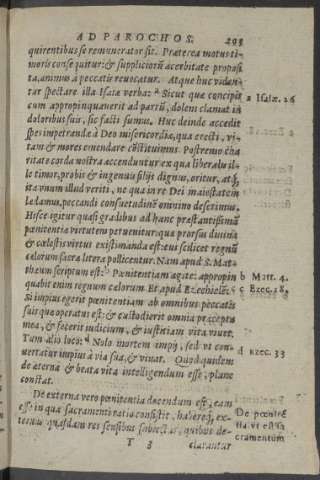 AD PAROCHOS. 293
quirentibus se remunerator sit. Præterea motus ti-
moris consequitur: & suppliciorū acerbitate proposi
ta, animus a peccatis reuocatur. Atque huc viden-
tur spectare illa Isaiæ verba: ª Sicut quæ concipit
cum appropinquauerit ad partū, dolens clamat in
doloribus suis, sic facti sumus. Huc deinde accedit
spes impetrandæ à Deo misericordiæ, qua erecti, vi-
tam & mores emendare cōstituimus. Postremo cha
ritate corda nostra accenduntur ex qua liberalis il-
le timor, probis & ingenuis filijs dignus, oritur, atq́;
ita vnum illud veriti, ne qua in re Dei maiestatem
lædamus, peccandi consuetudinē omnino deserimus.
Hisce igitur quasi gradibus ad hanc præstantissimā
pœnitentiæ virtutem peruenitur: quæ prorsus diuina
& cælestis virtus existimanda est: cui scilicet regnū
cælorum sacræ literæ pollicentur. Nam apud S. Mat-
thæum scriptum est: ᵇ Pœnitentiam agite: appropin
quabit enim regnum cælorum. Et apud Ezechielē: ᶜ
Si impius egerit pœnitentiam ab omnibus peccatis
suis quæ operatus est: & custodierit omnia præcepta
mea, & fecerit iudicium, & iustitiam vita viuet.
Tum alio loco: ᵈ Nolo mortem impij, sed vt con-
uertatur impius à via sua, & viuat. Quod quidem
de æterna & beata vita intelligendum esse, planè
constat.
De externa vero pœnitentia docendum est, eam
esse in qua sacramenti ratio consistit, habereq́, ex-
ternas quasdam res sensibus subiectas, quibus de-
T 3 clarantur
a Isaiæ. 26
b Matt. 4.
c Ezec. 18.
d Ezec. 33
De pœnitē
tia vt est sa
cramentum